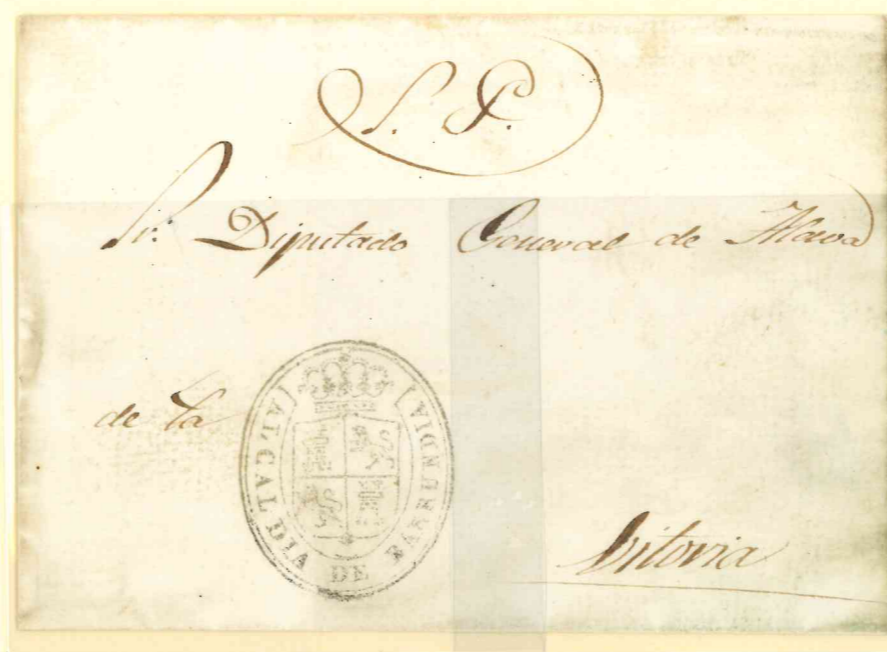 S. P.
Sr. Diputado General de Alava
de la
ALCALDIA DE BARRUNDIA
Vitoria